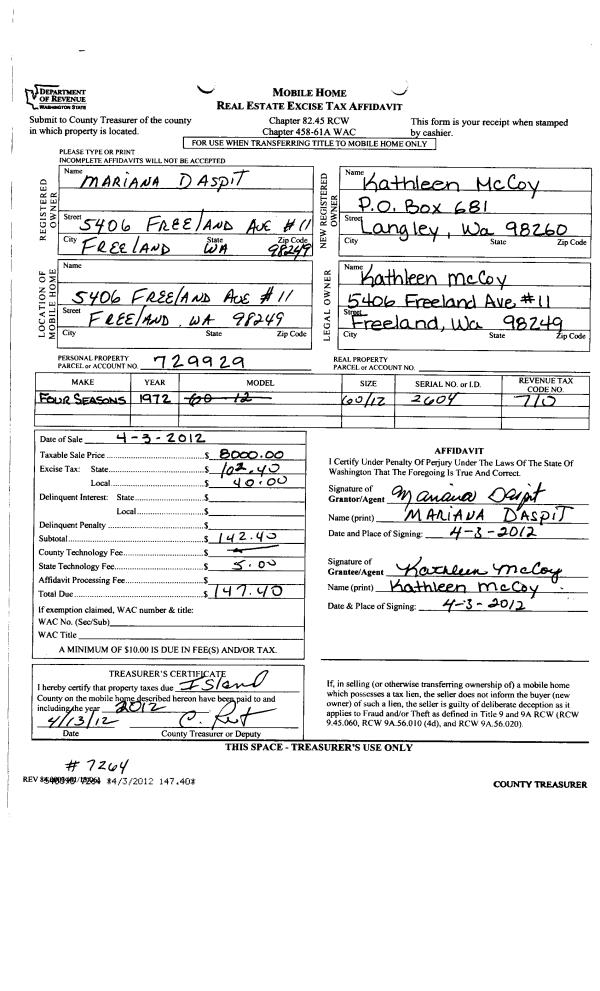 DEPARTMENT
OF REVENUE
WASHINGTON STATE
MOBILE HOME
REAL ESTATE EXCISE TAX AFFIDAVIT
Submit to County Treasurer of the county
in which property is located.
Chapter 82.45 RCW
Chapter 458-61A WAC
This form is your receipt when stamped
by cashier.
FOR USE WHEN TRANSFERRING TITLE TO MOBILE HOME ONLY
PLEASE TYPE OR PRINT
INCOMPLETE AFFIDAVITS WILL NOT BE ACCEPTED
REGISTERED OWNER
Name
MARIANA DASPIT
Street
5406 FREELAND AVE #11
City State Zip Code
FREELAND WA 98249
NEW REGISTERED OWNER
Name
Kathleen McCoy
P.O. Box 681
Street
Langley, Wa 98260
City State Zip Code
LOCATION OF MOBILE HOME
Name
5406 FREELAND AVE #11
Street
FREELAND, WA 98249
City State Zip Code
LEGAL OWNER
Name
Kathleen McCoy
5406 Freeland Ave. #11
Street
Freeland, Wa 98249
City State Zip Code
PERSONAL PROPERTY
PARCEL or ACCOUNT NO. 729929
REAL PROPERTY
PARCEL or ACCOUNT NO.
MAKE YEAR MODEL SIZE SERIAL NO. or I.D. REVENUE TAX CODE NO.
FOUR SEASONS 1972 60 12 60/12 2604 710
Date of Sale 4-3-2012
Taxable Sale Price $ 8000.00
Excise Tax: State $ 102.40
Local $ 40.00
Delinquent Interest: State $
Local $
Delinquent Penalty $
Subtotal $ 142.40
County Technology Fee $
State Technology Fee $ 5.00
Affidavit Processing Fee $
Total Due $ 147.40
If exemption claimed, WAC number & title:
WAC No. (Sec/Sub)
WAC Title
A MINIMUM OF $10.00 IS DUE IN FEE(S) AND/OR TAX.
AFFIDAVIT
I Certify Under Penalty Of Perjury Under The Laws Of The State Of
Washington That The Foregoing Is True And Correct.
Signature of
Grantor/Agent Mariana Daspit
Name (print) MARIANA D'ASPIT
Date and Place of Signing: 4-3-2012
Signature of
Grantee/Agent Kathleen McCoy
Name (print) Kathleen McCoy
Date & Place of Signing: 4-3-2012
TREASURER'S CERTIFICATE
I hereby certify that property taxes due Island
County on the mobile home described hereon have been paid to and
including the year 2012
4/13/12
Date County Treasurer or Deputy
If, in selling (or otherwise transferring ownership of) a mobile home
which possesses a tax lien, the seller does not inform the buyer (new
owner) of such a lien, the seller is guilty of deliberate deception as it
applies to Fraud and/or Theft as defined in Title 9 and 9A RCW (RCW
9.45.060, RCW 9A.56.010 (4d), and RCW 9A.56.020).
THIS SPACE - TREASURER'S USE ONLY
# 7264
REV 7264 *4/3/2012 147.40*
COUNTY TREASURER